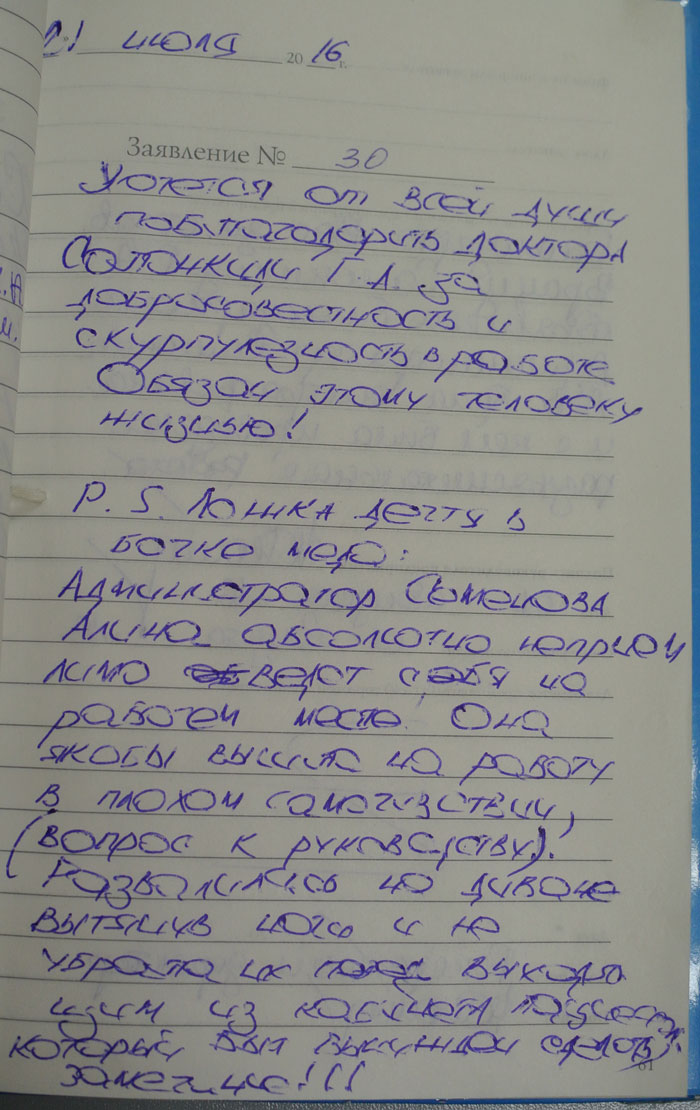 21 июля 2016 г.
Заявление № 30
Хочется от всей души
поблагодарить доктора
Г.А. за
добросовестность и
скурпулезность в работе
Обязан этому человеку
жизнью!
P.S. Ложка дёгтя в
бочке меда:
Администратор Семенова
Алина абсолютно неприем
лимо ведет себя на
рабочем месте. Она
якобы вышла на работу
в плохом самочувствии,
(вопрос к руководству).
Развалилась на диване
вытянув ноги и не
убрала их перед выходя
щим из кабинета пациентом,
который был вынужден сделать
замечание!!!
61